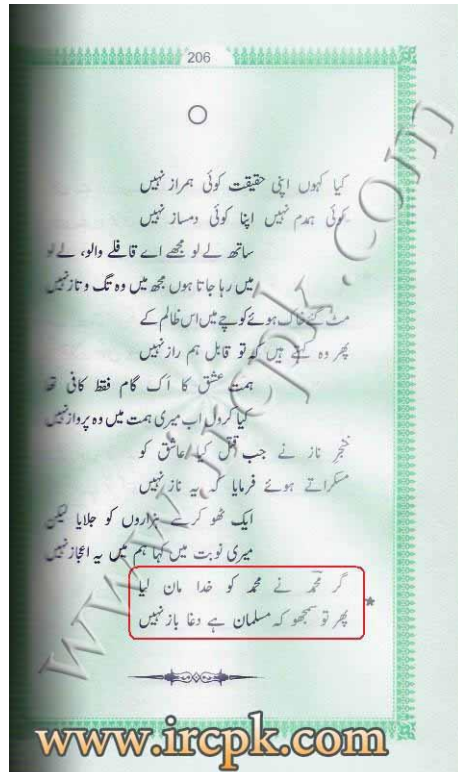 206
کیا کہوں اپنی حقیقت کوئی ہمراز نہیں
کوئی ہمدم نہیں اپنا کوئی دمساز نہیں
ساتھ لے لو مجھے اے قافلے والو، لے لو
میں رہا جاتا ہوں مجھ میں وہ تگ و تاز نہیں
مٹ گئے خاک ہوئے کوچے میں اس ظالم کے
پھر وہ کہتے ہیں کہ تو قابل ہم راز نہیں
ہمت عشق کا اک گام فقط کافی تھا
کیا کروں اب میری ہمت میں وہ پرواز نہیں
خنجر ناز نے جب قتل کیا عاشق کو
مسکراتے ہوئے فرمایا کہ یہ ناز نہیں
ایک ٹھوکر سے ہزاروں کو جلایا لیکن
میری نوبت میں کہا ہم میں یہ اعجاز نہیں
گر محمد نے محمد کو خدا مان لیا
پھر تو سمجھو کہ مسلمان ہے دغا باز نہیں
*
www.ircpk.com
www.ircpk.com